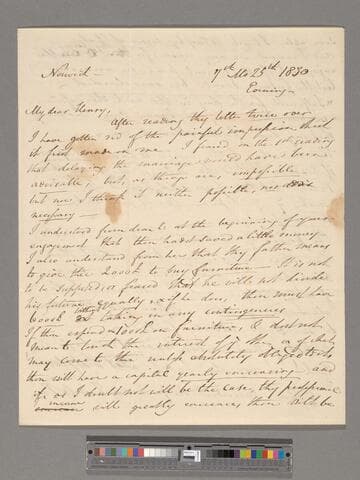 Norwich – 7th Mo 25th 1830
Evening –
My dear Henry,
After reading thy letter twice over
I have gotten rid of the painful impression that
it first made on me. I found in the 1st reading
that delaying the marriage would have been
advisable, but, as things are, impossible –
but now I think it neither possible, nor
necessary –
I understood from dear L at the beginning of your
engagement that thou hadst saved a little money
I also understand from her that thy father means
to give thee 200£ to buy furniture – It is not
to be supposed, or feared that he will not divide
his fortune equally, & if he does, thou must have
6000£ without taking in any contingencies
If thou expend 100£ on furniture, & dost not
mean to touch the interest of thy
may come to thee unless absolutely obliged to do so
thou will have a capital yearly increasing – and
if, as I doubt not will be the case, thy professional
income will greatly increase, thou wilt be